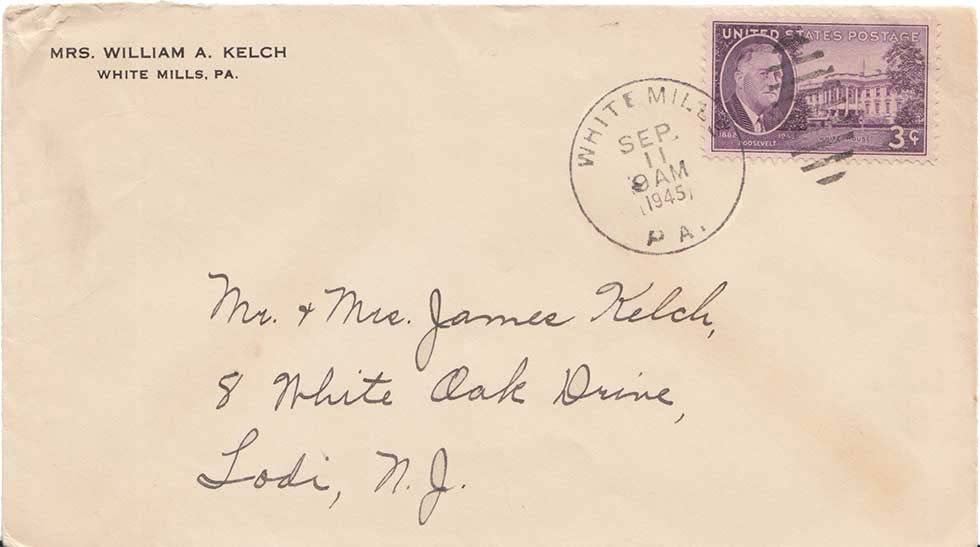 MRS. WILLIAM A. KELCH
WHITE MILLS, PA.
UNITED STATES POSTAGE
1882
ROOSEVELT
3¢
WHITE MILLS
SEP.
11
9 AM
1945
PA.
Mr. & Mrs. James Kelch,
8 White Oak Drive,
Lodi, N.J.